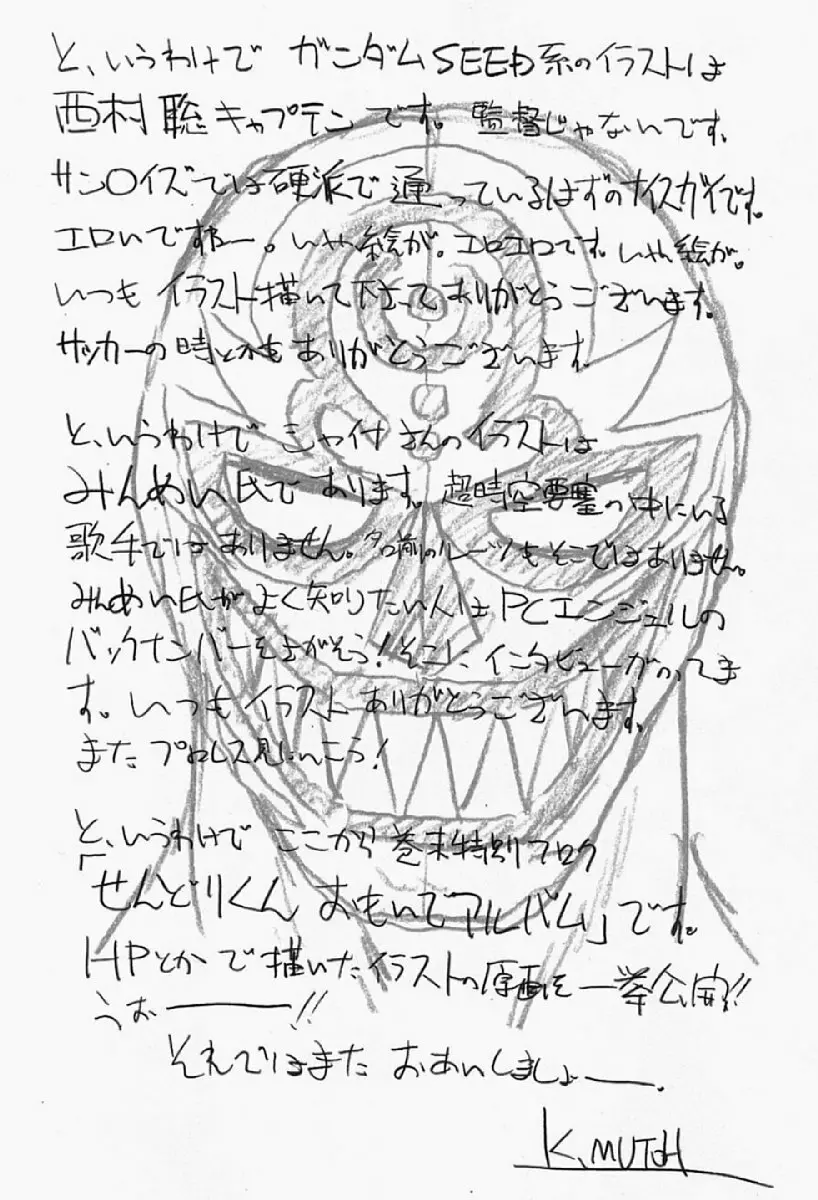 と、いうわけで ガンダムSEED系のイラストは
西村聡キャプテンです。監督じゃないです、
サン〇イズでは硬派で通っているはずのナイスガイです。
エロいですねー。いや絵が。エロエロです。いや絵が。
いつもイラスト描いて下さってありがとうございます。
サッカーの時とかもありがとうございます。
と、いうわけで シャイナさんのイラストは
みんめい氏であります。超時空要塞の中にいる
歌手ではありません。名前のルーツもそこではありません。
みんめい氏がよく知りたい人はPCエンジェルの
バックナンバーをさがそう!そこにインタビューがのってま
す。いつもイラストありがとうございます。
またプロレス見にいこう!
と、いうわけで ここから巻末特別フロク
「せんどりくん おもいでアルバム」です。
HPとかで描いたイラストの原画を一挙公開!!
うおーーー!!
それではまた おあいしましょー。
K.MUTOH